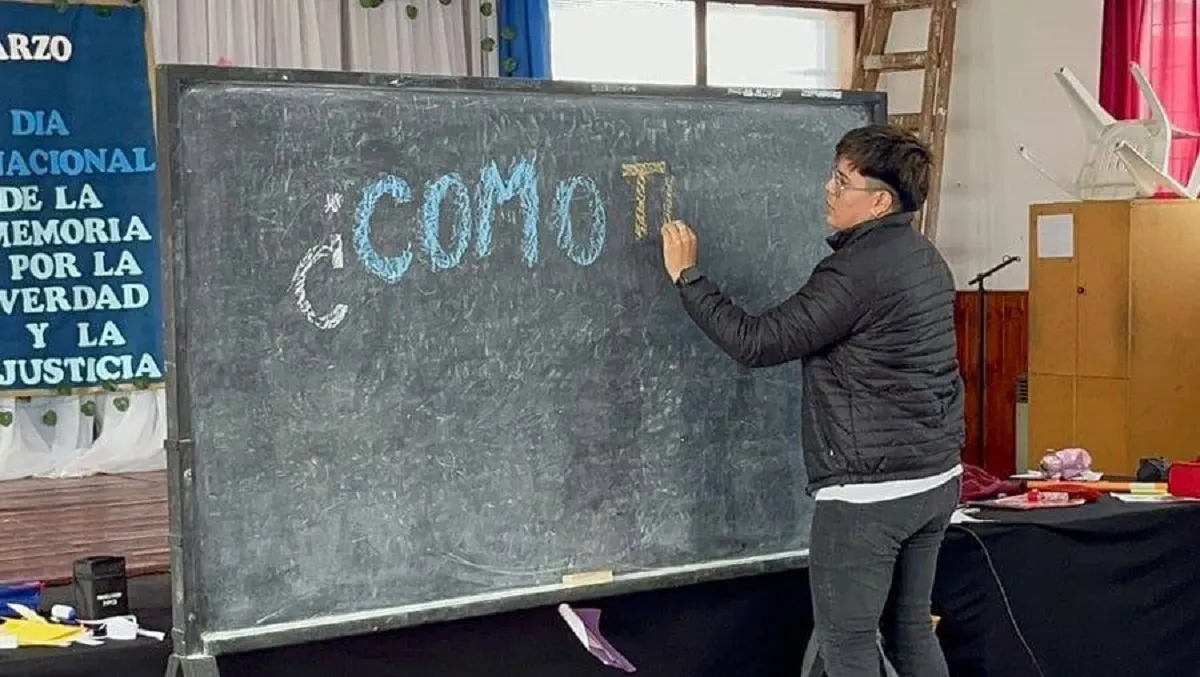 ARZO
DIA
NACIONAL
DE LA
MEMORIA
POR LA
VERDAD
Y LA
JUSTICIA
¿COMO T